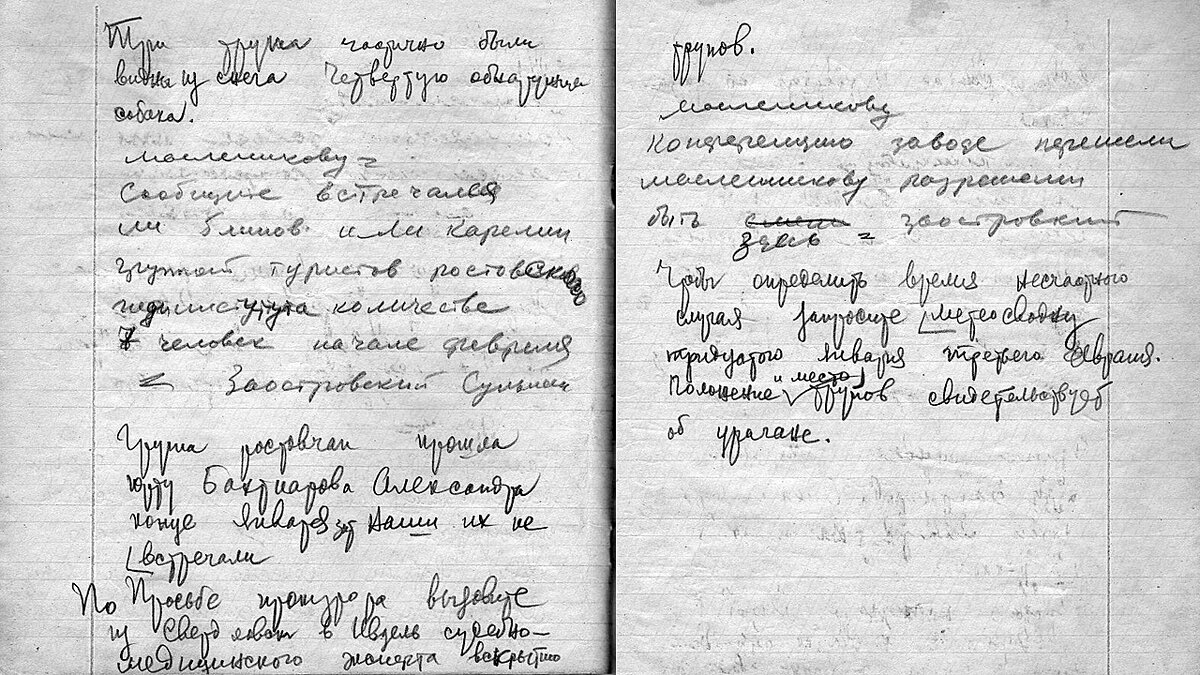 Три трупа частично были
видны из снега Четвертую обнаружила
собака.
масленикову =
сообщите встречался
ли блинов или карелин
группой туристов ростовского
пединститута количестве
7 человек начале февраля
= Заостровский Сульман
Группа ростовчан прошла
юрту Бахтиарова Александра
конце января зпт Наши их не
встречали
По Просьбе прокурора вызовите
из Свердловска в Ивдель судебно-
медицинского эксперта вскрытию
трупов.
масленикову
конференцию заводе перенесли
масленникову разрешили
быть
здесь = заостровский
Чтобы определить время несчастного
случая запросите метеосводку
тридцатого января третьего февраля.
и место
Положение трупов свидетельствует
об урагане.